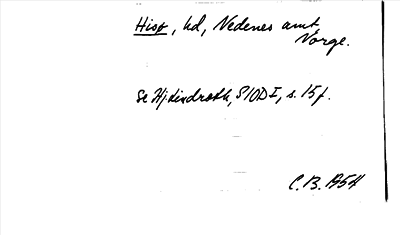 Hisø, hd, Nedenes amt
Norge.
Se Hj. Lindroth, SIOD I, s. 15 f.
C. B. 1954